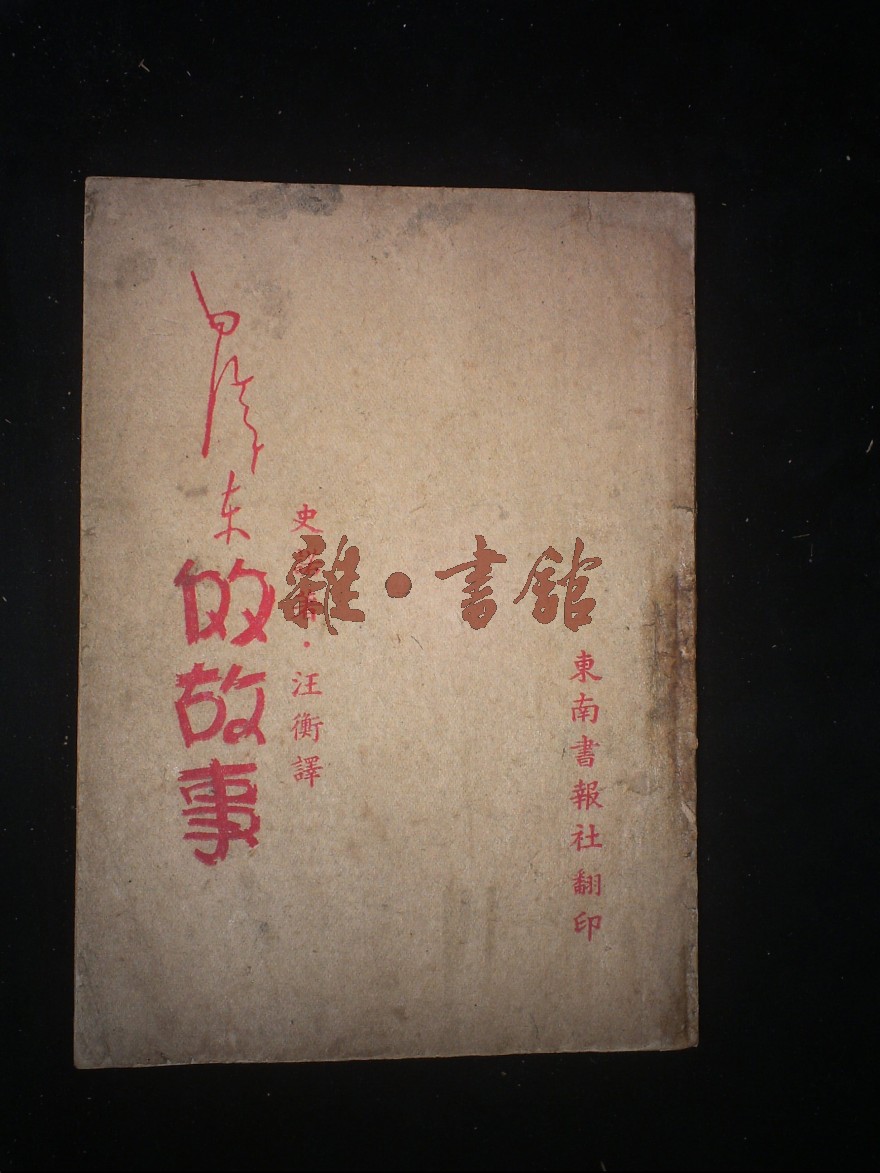 東南書報社翻印
史諾著·汪衡譯
毛澤东的故事
雜·書館